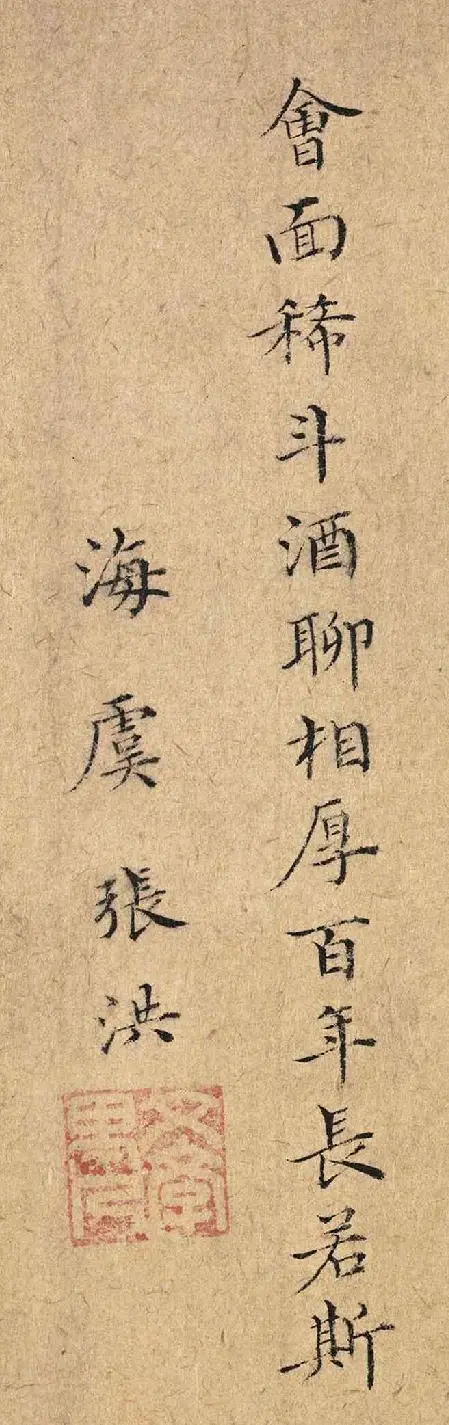 會面稀斗酒聊相厚百年長若斯
海虞張洪